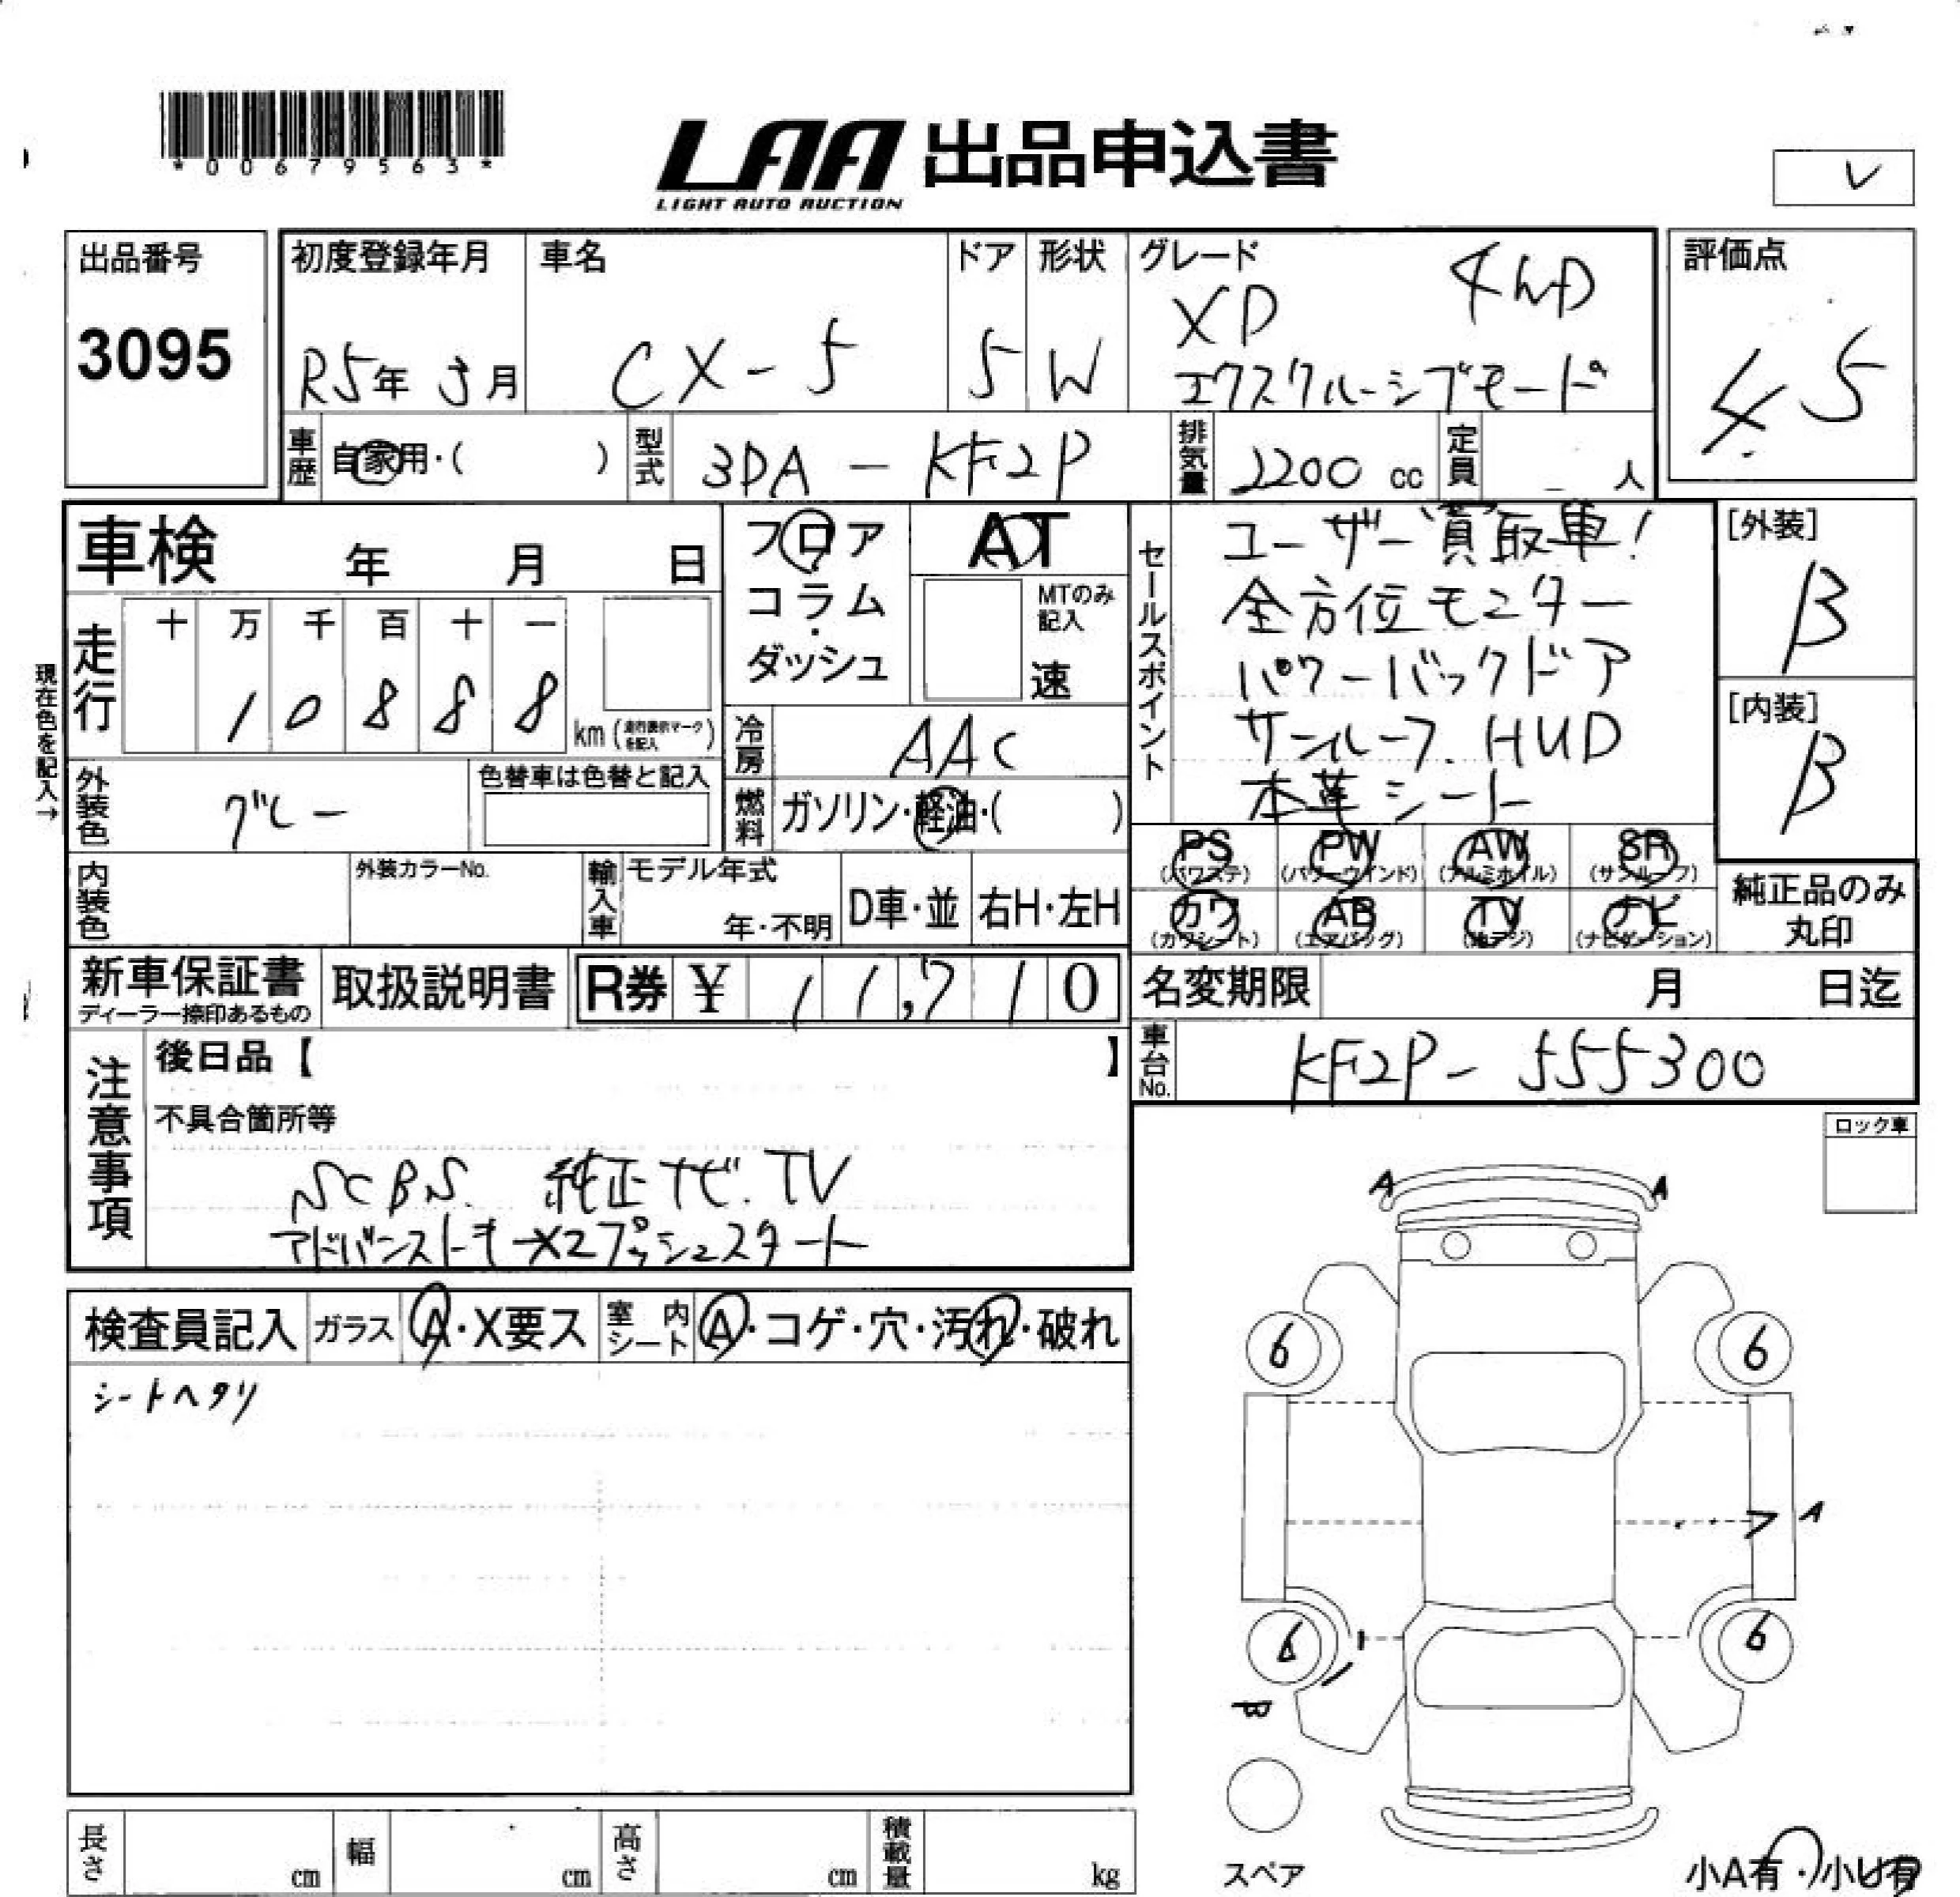 *00679563*
LAA 出品申込書
LIGHT AUTO AUCTION
出品番号
3095
初度登録年月
R5年 3月
車名
CX-5
ドア
5
形状
W
グレード
XD 4WD
エクスクルーシブモード
評価点
4.5
車歴
自家用・( )
型式
3DA - KF2P
排気量
2200 cc
定員
人
車検 年 月 日
フロア
コラム
・
ダッシュ
AT
MTのみ
記入
速
現在色を記入→
走行
十 万 千 百 十 一
1 0 8 8 8
km (走行表示マークを記入)
冷房
AAC
外装色
グレー
色替車は色替と記入
燃料
ガソリン・軽油・( )
内装色
外装カラーNo.
輸入車
モデル年式
年・不明
D車・並
右H・左H
セールスポイント
ユーザー買取車!
全方位モニター
パワーバックドア
サンルーフ. HUD
本革シート
[外装]
B
[内装]
B
PS (パワステ)
PW (パワーウインド)
AW (アルミホイル)
SR (サンルーフ)
カワ (カワシート)
AB (エアバッグ)
TV (地デジ)
ナビ (ナビゲーション)
純正品のみ
丸印
新車保証書
ディーラー捺印あるもの
取扱説明書
R券 ¥ 11,710
名変期限 月 日迄
車台No.
KF2P-555300
注意事項
後日品【 】
不具合箇所等
SCBS. 純正ナビ. TV
アドバンストキー×2プッシュスタート
ロック車
検査員記入
ガラス
A・X要ス
室内シート
A・コゲ・穴・汚れ・破れ
シートヘタリ
A A
6 6
A
6 6
スペア
小A有・小U有
長さ cm
幅 cm
高さ cm
積載量 kg